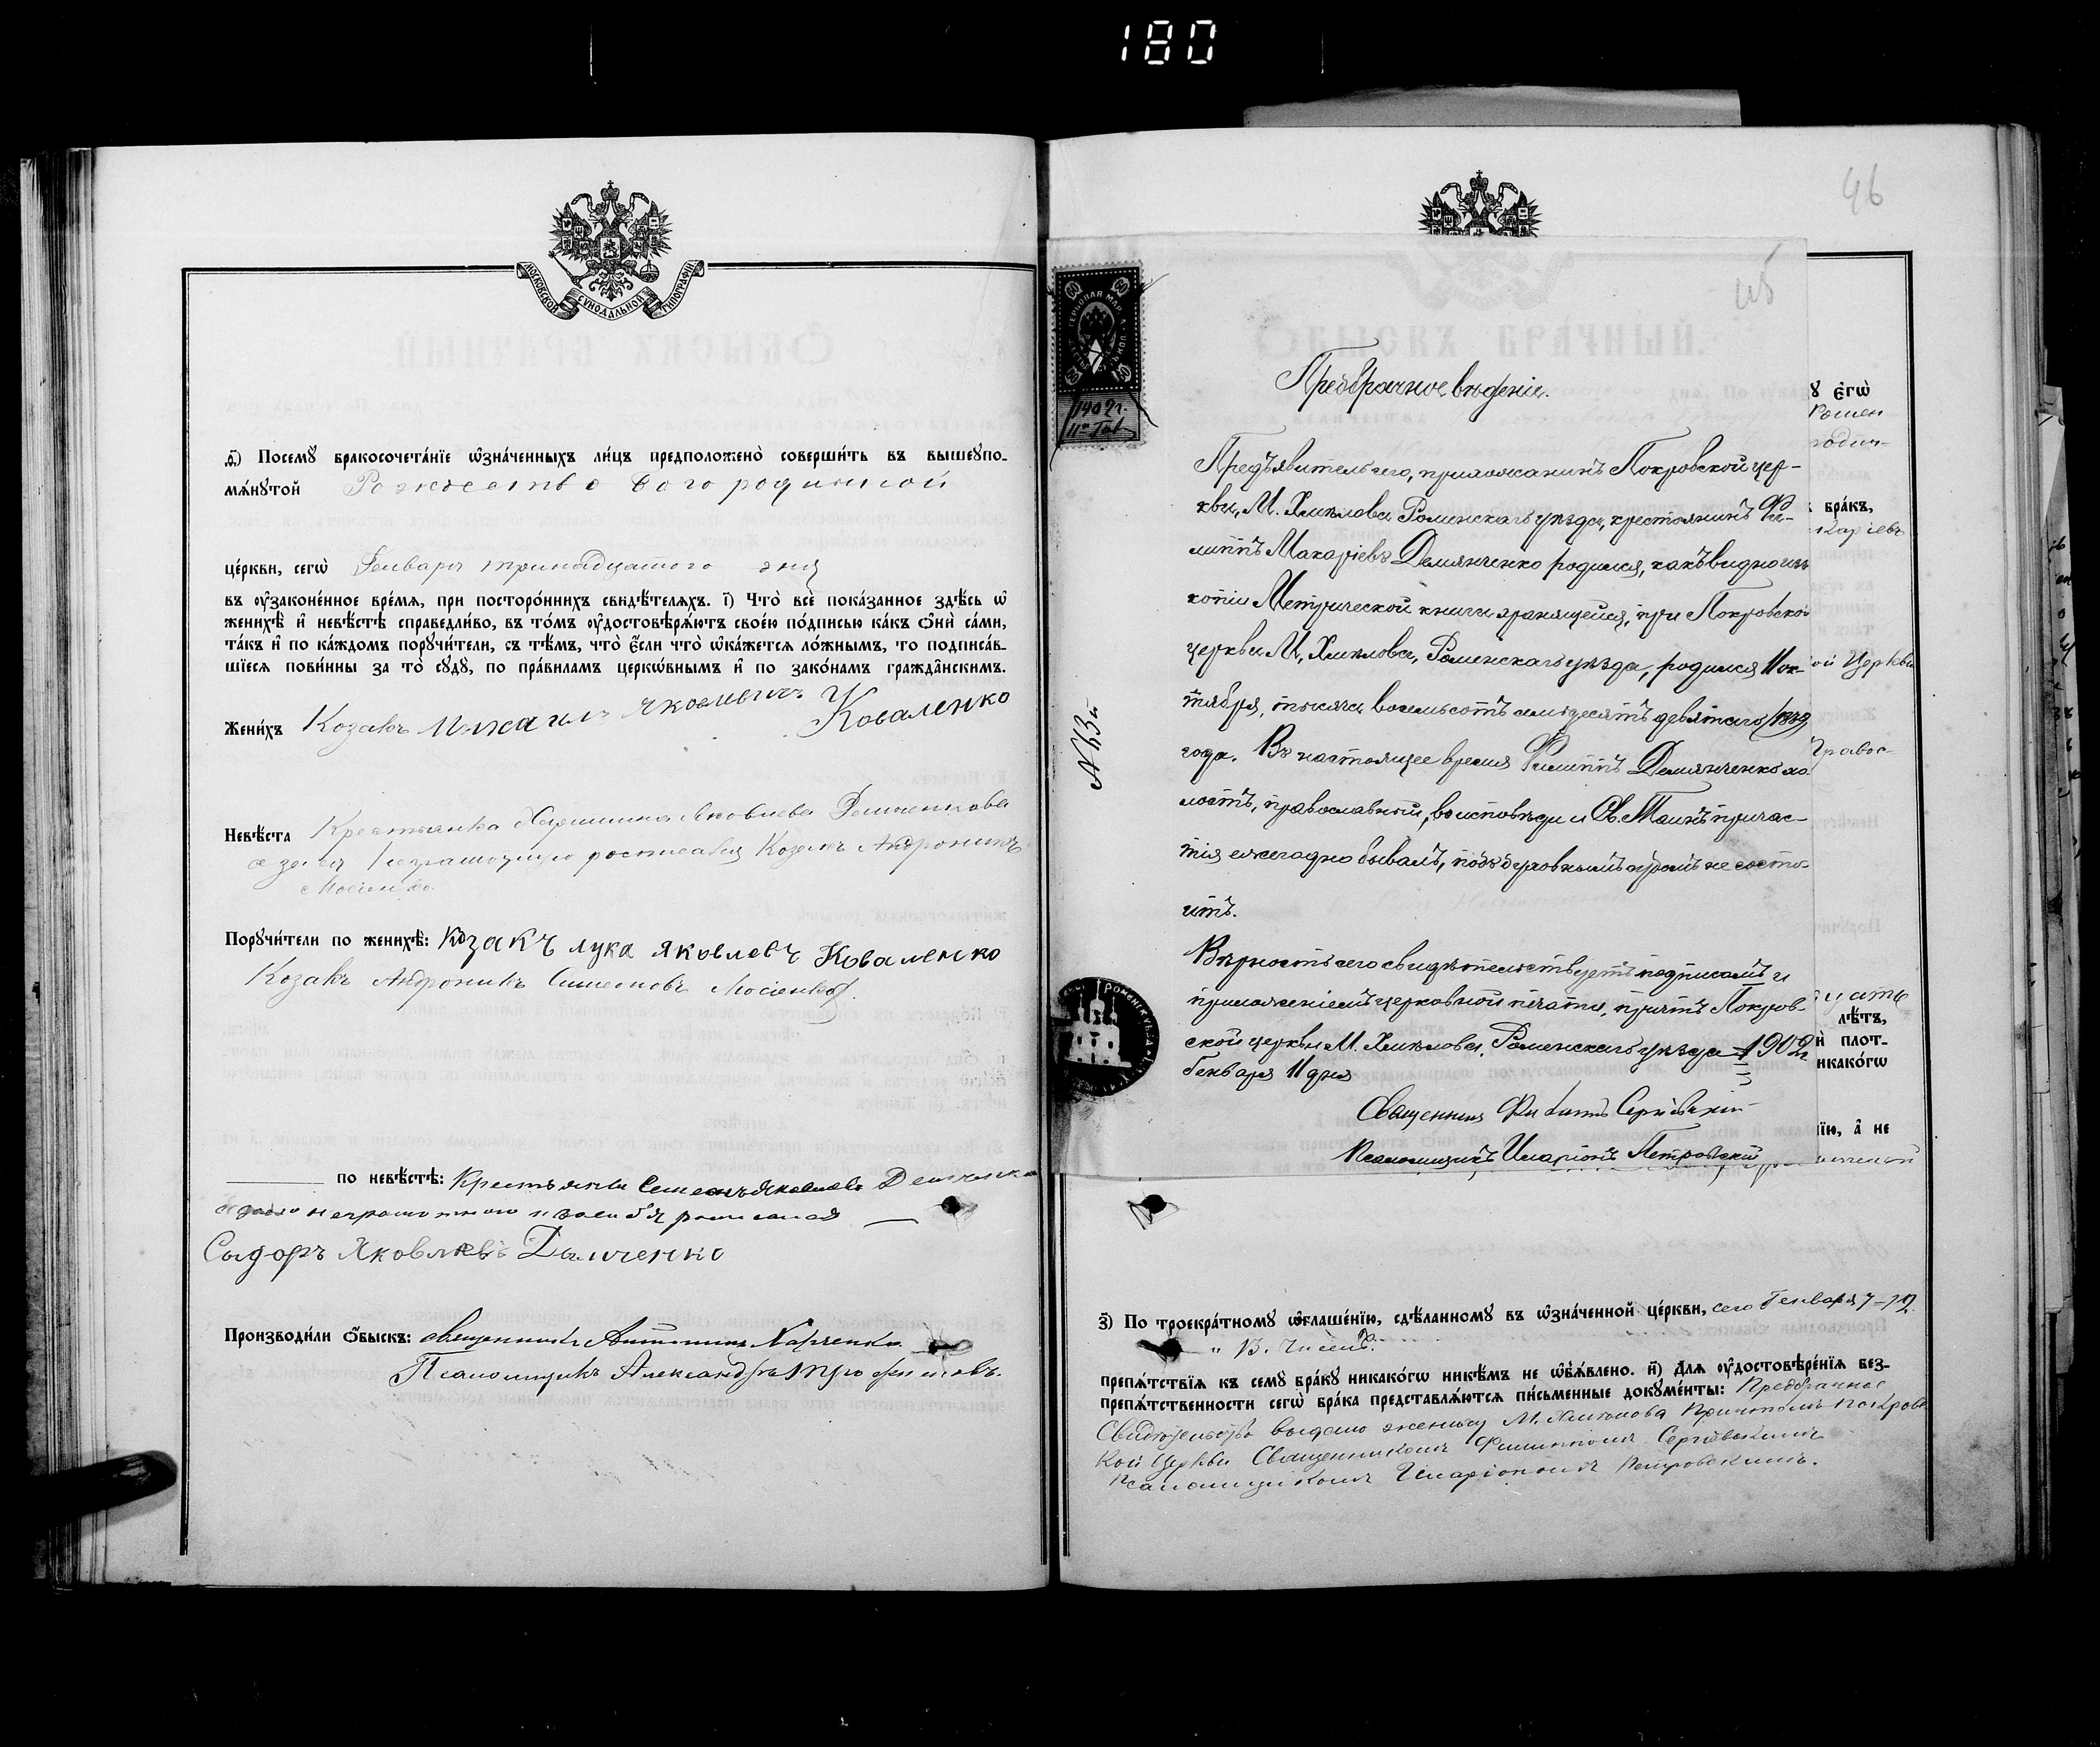 180
МОСКОВСКОЙ СѴНОДАЛЬНОЙ ТИПОГРАФІИ
ѳ҃) Посемꙋ бракосочета́нїе ѡ҆зна́ченныхъ ли́цъ предположено̀ соверши́ть въ вышеꙋпо-
мѧ́нꙋтой Рождество Богородичной
це́ркви, сегѡ̀ Генваря тринадцатого дня
въ ᲂу҆законе́нное вре́мѧ, при посторо́ннихъ свидѣ́телѧхъ. і҃) Что̀ всѐ пока́занное здѣ́сь ѡ҆
женихѣ̀ и҆ невѣ́стѣ справедли́во, въ то́мъ ᲂу҆достовѣрѧ́ютъ свое́ю по́дписью ка́къ ѻ҆нѝ са́ми,
та́къ и҆ по ка́ждомъ порꙋчи́тели, съ тѣ́мъ, что̀ є҆́сли что̀ ѡ҆ка́жется ло́жнымъ, то подписа́в-
шїесѧ пови́нны за то̀ сꙋдꙋ̀, по пра́виламъ церко́внымъ и҆ по зако́намъ гражда́нскимъ.
Жени́хъ Козакъ Михаилъ Яковлевичъ Коваленко
Невѣ́ста Крестьянка Яковлева Демченкова
а за нея неграмотную росписался Козакъ Андроникъ
Мосіенко.
Порꙋчи́тели по женихѣ̀: Козакъ лука яковлевъ Коваленко
Козакъ Андроникъ Симеоновъ Мосіенко.
по невѣ́стѣ: Крестьяне Семенъ Яковлевъ Демченко
неграмотного и за себя росписался
Сыдоръ Яковлевъ Демченко
Производи́ли ѻ҆́быскъ: священникъ Антонинъ Харченко
Псаломщикъ Александръ Трофимовъ.
46
116
1902 г.
11го Генв.
№ 3й
Предбрачное вѣденіе.
Предъявитель сего, прихожанинъ Покровской цер-
кви, М. Хмѣлова Роменскаго уѣзда, крестьянинъ Фи-
липпъ Макаріевъ Демянченко родился, какъ видно изъ
копіи Метрической книги хранящейся, при Покровской
церкви М. Хмѣлова, Роменскаго уѣзда, родился 11 ок-
тября, тысяча восемьсотъ семьдесятъ девятаго /1879
года. Въ настоящее время Филиппъ Демянченко хо-
лостъ, православный, во исповѣди и Св. Таинъ причас-
тія ежегодно бываетъ, подъ духовнымъ судомъ не состо-
итъ.
Вѣрность сего свидѣтельствуетъ подписомъ и
приложеніемъ церковной печати, причтъ Покров-
ской церкви М. Хмѣлова, Роменскаго уѣзда 1902 г.
Генваря 11 дня
Священникъ Филиппъ Сергіевскій
Псаломщикъ Иларіонъ Петровскій
ꙋ є҆гѡ̀
Ромен
родич-
бра́къ,
каріевъ
ой Церкви
Правос-
цать
лѣ́тъ,
й плот-
никако́гѡ
їю, а҆ не
з҃) По троекра́тномꙋ ѡ҆глаше́нїю, сдѣ́ланномꙋ въ ѡ҆зна́ченной це́ркви, сего Генваря 7-го
препѧ́тствїѧ къ семꙋ̀ бра́кꙋ никако́гѡ никѣ́мъ не ѡ҆б̾ѧ́влено. и҃) Длѧ ᲂу҆достовѣре́нїѧ без-
препѧ́тственности сегѡ̀ бра́ка представлѧ́ютсѧ пи́сьменные докꙋме́нты: Предбрачное
Свидетельство выдано жениху М. Хмѣлова Причтомъ Покровс
кой Церкви Священникомъ Филиппомъ Сергіевскимъ
Псаломщикомъ Иларіономъ Петровскимъ.